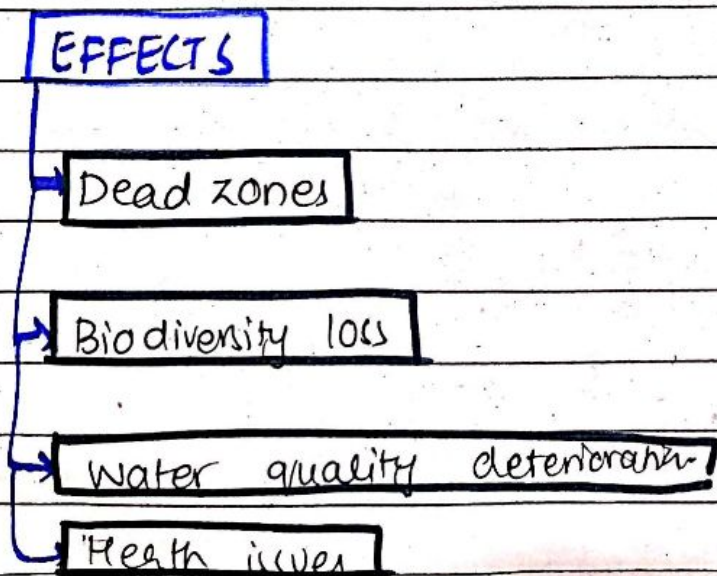 EFFECTS
Dead zones
Biodiversity loss
Water quality deterioration
Heath issues